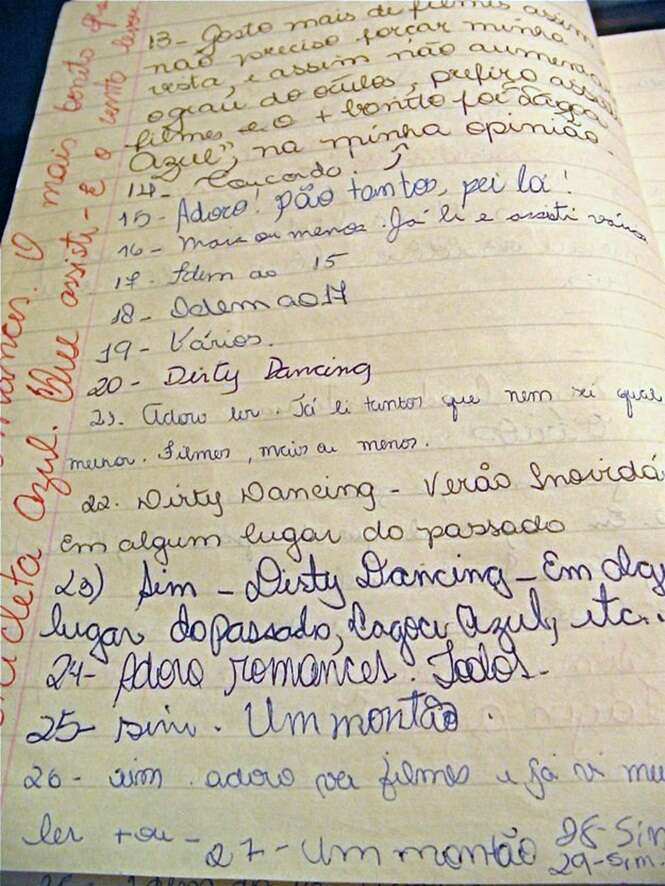 13- Gosto mais de filmes assim
não preciso forçar minha
vista, e assim não aumenta
o grau do óculos, prefiro assi
filmes e o + bonito foi "Lagoa
Azul", na minha opinião.
14- Concordo.
15- Adoro! São tantos, sei lá!
16- Mais ou menos. Já li e assisti vários
17- Idem ao 15
18- Idem ao 17
19- Vários.
20- Dirty Dancing
21. Adoro ler. Já li tantos que nem sei qual
melhor. Filmes, mais ou menos.
22. Dirty Dancing - Verão Inovidá
Em algum lugar do passado
23) Sim - Dirty Dancing - Em alg
lugar do passado, Lagoa Azul, etc..
24- Adoro romances. Todos.
25- sim. Um montão.
26- sim. adoro ver filmes e já vi mu
ler + ou -
27- Um montão
28- Sim
29- Sim.
mances. O mais bonito q
cicleta Azul. Que assisti - E o vento levou